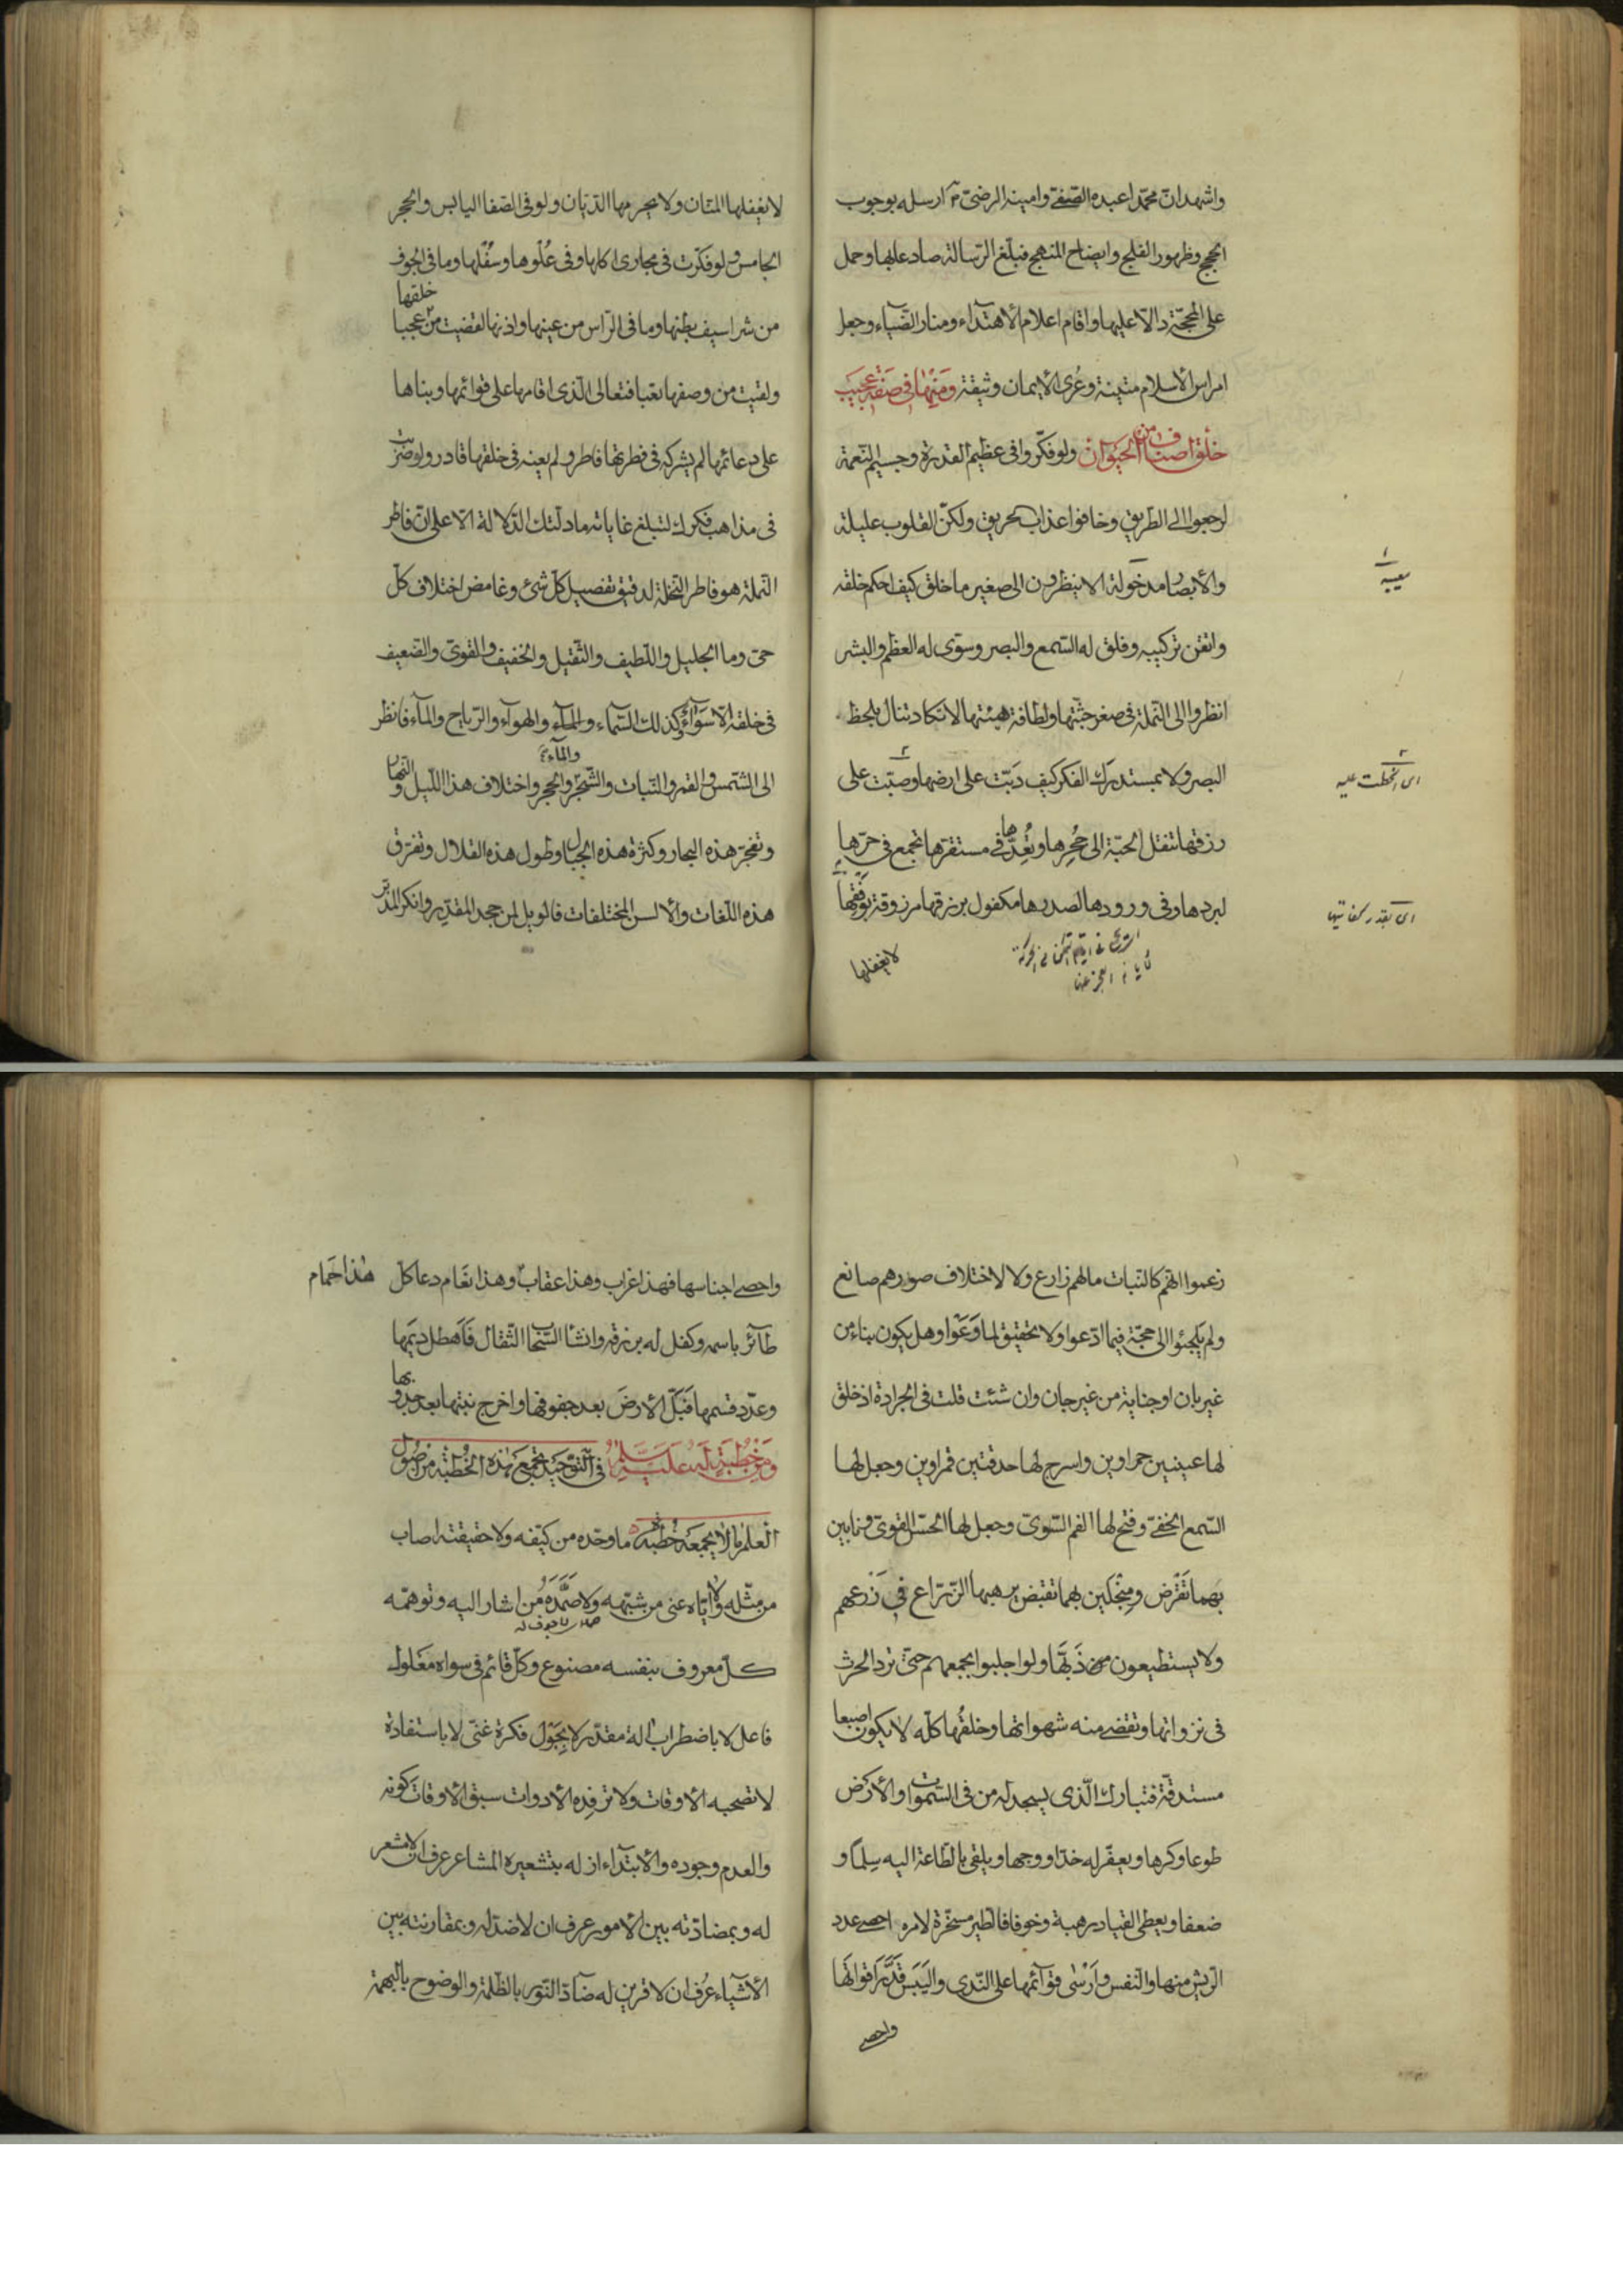 واشهد ان محمّدا عبده الصّفىّ وامينه الرضىّ ارسله بوجوب
الحجج وظهور الفلج وايضاح المنهج فبلّغ الرّسالة صادعا بها وحمل
على المحجّة دالّا عليها واقام اعلام الأهتدآء ومنار الضّياء وجعل
امراس الأسلام متينة وعُرى الأيمان وثيقة ومنها فى صفة عجيب
خلق اصناف من الحيوان ولو فكّروا فى عظيم القدرة وجسيم النّعمة
لرجعوا الى الطريق وخافوا عذاب الحريق ولكنّ القلوب عليلة
والأبصار مدخولة الا ينظرون الى صغير ما خلق كيف احكم خلقه
واتقن تركيبه وفلق له السّمع والبصر وسوّى له العظم والبشر
انظروا الى النّملة فى صغر جثّتها ولطافة هيئتها لا تكاد تنال بلحظ
البصر ولا بمستدرك الفكر كيف دَبّت على ارضها وصبّت على
رزقها تنقل الحبّة الى جُحرها وتُعِدّها فى مستقرّها تجمع فى حرّها
لبردها وفى ورودها لصدرها مكفول برزقها مرزوقة بوفقها
لا يغفلها
معيبه
اى انحطت عليه
اى بقدر كفايتها
لا يغفلها المنّان ولا يحرمها الدّيّان ولو فى الصّفا اليابس والحجر
الجامس ولو فكّرت فى مجارى اكلها وفى عُلوها وسُفلها وما فى الجوف
من شراسيف بطنها وما فى الرّأس من عينها واذنها لقضيت من خلقها عجبا
ولقيت من وصفها تعبا فتعالى الّذى اقامها على قوائمها وبناها
على دعائمها لم يشركه فى فطرتها فاطر ولم يعنه فى خلقها قادر ولو ضربت
فى مذاهب فكرك لتبلغ غاياته ما دلّتك الدّلالة الّا على انّ فاطر
النّملة هو فاطر النّخلة لدقيق تفصيل كلّ شئ وغامض اختلاف كلّ
حىّ وما الجليل واللّطيف والثّقيل والخفيف والقوىّ والضّعيف
فى خلقه الّا سَوآءٌ وكذلك السّماء والمآء والهوآء والرّياح والمآء فانظر
الى الشّمس والقمر والنّبات والشّجر والمآء والحجر واختلاف هذا اللّيل والنّهار
وتفجّر هذه البحار وكثرة هذه الجبال وطول هذه القلال وتفرّق
هذه اللّغات والألسن المختلفات فالويل لمن جحد المقدّر وانكر المدبّر
زعموا انّهم كالنّبات ما لهم زارع ولا لاختلاف صورهم صانع
ولم يلجئوا الى حجّة فيما ادّعوا ولا تحقيق لما وَعَوْا وهل يكون بناء من
غير بان او جناية من غير جان وان شئت قلت فى الجرادة اذ خلق
لها عينين حمراوين واسرج لها حدقتين قمراوين وجعل لها
السّمع الخفىّ وفتح لها الفم السّوىّ وجعل لها الحسّ القوىّ ونابين
بهما تَقْرض ومِنْجلَين بهما تقبض يرهبها الزّرّاع فى زَرْعهم
ولا يستطيعون ذَبّها ولو اجلبوا بجمعهم حتّى ترد الحرث
فى نزواتها وتقضى منه شهواتها وخلقُها كلّه لا يكون اصبعا
مستدقّة فتبارك الّذى يسجد له من فى السّموات والأرض
طوعا وكرها ويعفّر له خدّا ووجها ويلقى بالطّاعة اليه سِلْمًا و
ضعفا ويعطى القياد رهبة وخوفا فالطّير مسخّرة لامره احصى عدد
الرّيش منها والنّفس وارْسى قوآئمها على النّدى واليَبَس قدَّرَ اقواتَها
واحصى
واحصى اجناسها فهذا غراب وهذا عقاب وهذا نَعَام دعا كلّ هذا حَمام
طآئر باسمه وكفل له برزقه وانشأ السّحاب الثّقال فاَهطل دِيَمها
وعدّد قسمها فَبَلّ الأرضَ بعد جفوفها واخرج نبتها بعد جدوبها
ومن خطبة له عليه السلم فى التّوحيد وتجمع هذه الخُطبة من اصول
العلم ما لا يجمعه خُطبة ما وحّده من كيّفه ولا حقيقته اصاب
من مثّله ولا ايّاه عنى من شبّهه ولا صَمَّدَهُ من اشار اليه وتوهّمه
كلّ معروف بنفسه مصنوع وكلّ قائم فى سواه مَعْلول
فاعل لا باضطراب آلة مقدّر لا بِجَوْل فكرة غنىّ لا باستفادة
لا تصحبه الأوقات ولا ترفِده الأدوات سبق الأوقاتَ كونه
والعدم وجوده والأبتدآء ازله بتشعيره المشاعر عرف ان لا مشعر
له وبمضادّته بين الأمور عرف ان لا ضدّ له وبمقارنته بين
الأشيآء عُرف ان لا قرين له ضآدّ النّور بالظّلمة والوضوح بالبهمة